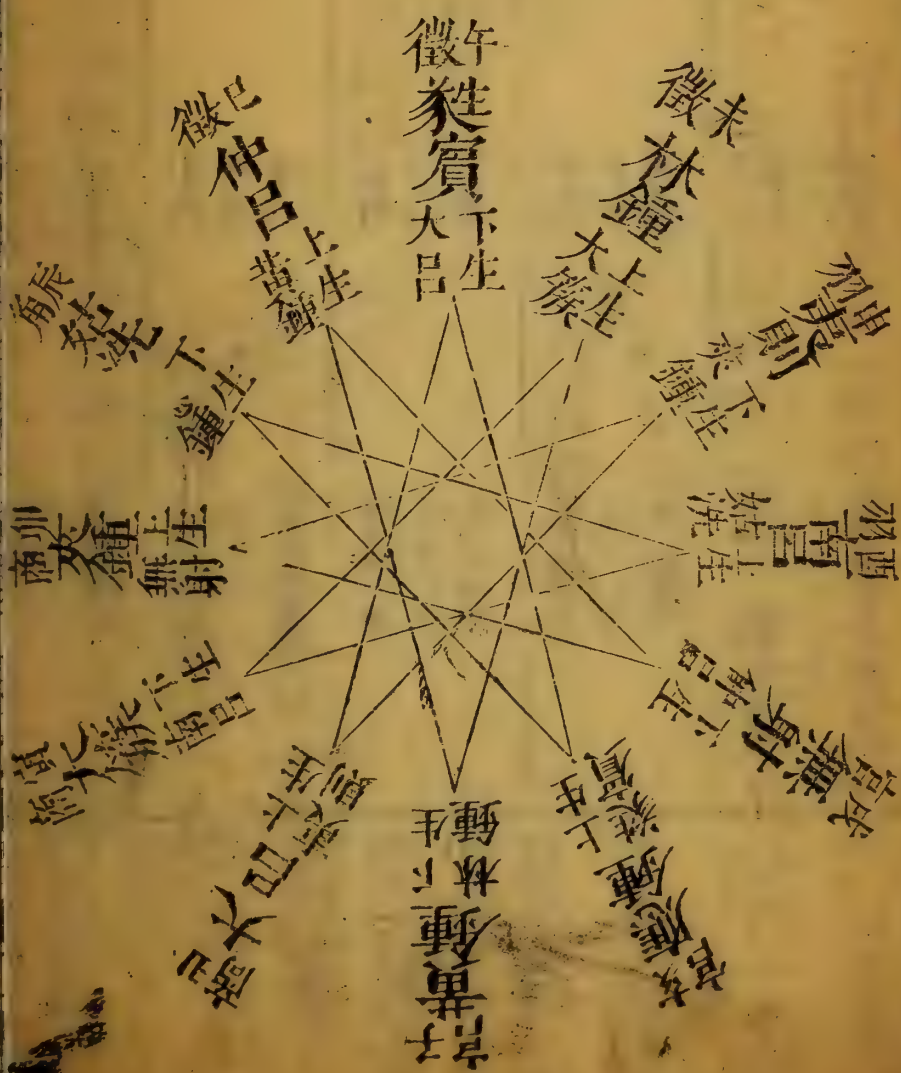 午
徵
蕤賓
下生
大呂
未
徵
林鐘
上生
大簇
申
羽
夷則
下生
夾鐘
酉
羽
南呂
上生
姑洗
戌
宮
無射
下生
仲呂
亥
宮
應鐘
上生
蕤賓
子
宮
黃鐘
下生
林鐘
丑
商
大呂
上生
夷則
寅
商
大簇
下生
南呂
卯
商
夾鐘
上生
無射
辰
角
姑洗
下生
鐘
巳
徵
仲呂
上生
黃鐘